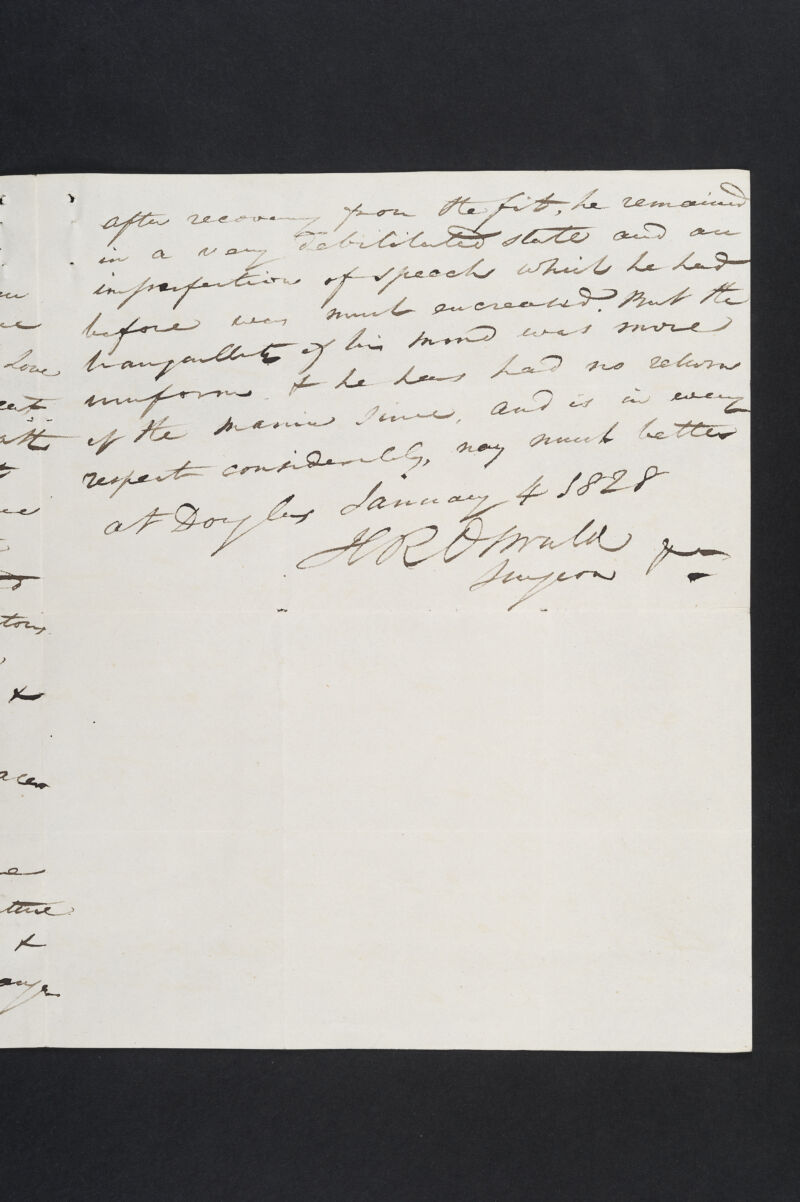 after recovery from the fit, he remained
in a very debilitated state and an
imperfection of speech which he had
before was much encreased. But the
tranquillity of his mind was more
uniform & he has had no return
of the mania since, and is in every
respect considerably, nay much better
at Douglas January 4 1828
HR Oswald
Surgeon
Love
&